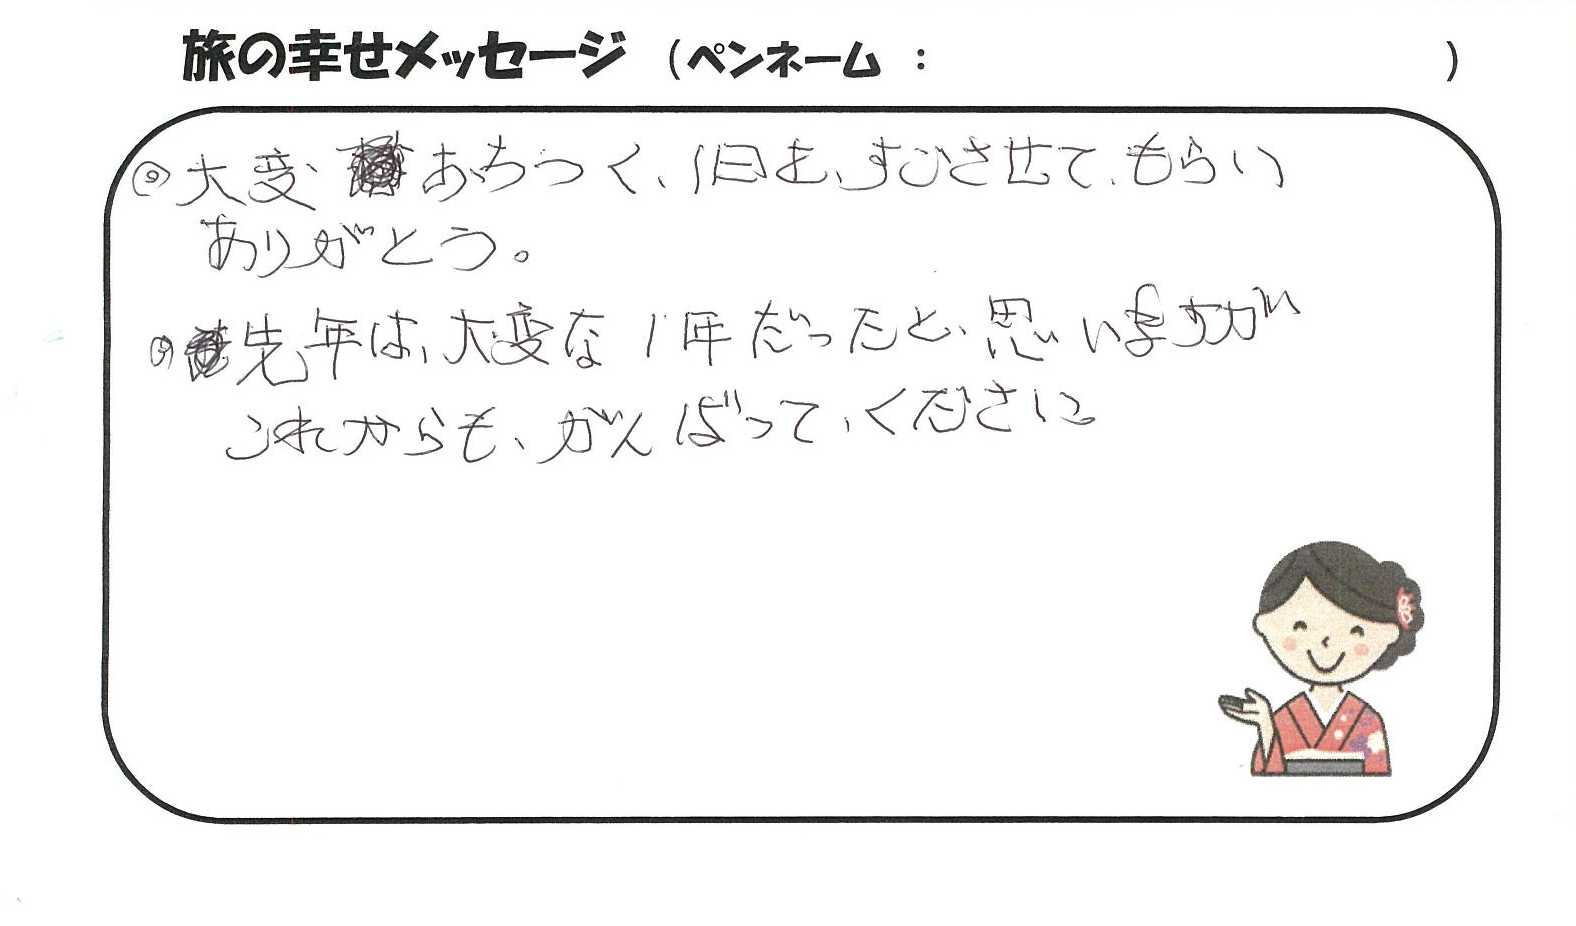 旅の幸せメッセージ （ペンネーム ： ）
◎大変、あちつく、1日を、すごさせて、もらい
ありがとう。
◎先年は、大変な1年だったと、思いますが
これからも、がんばって、ください。